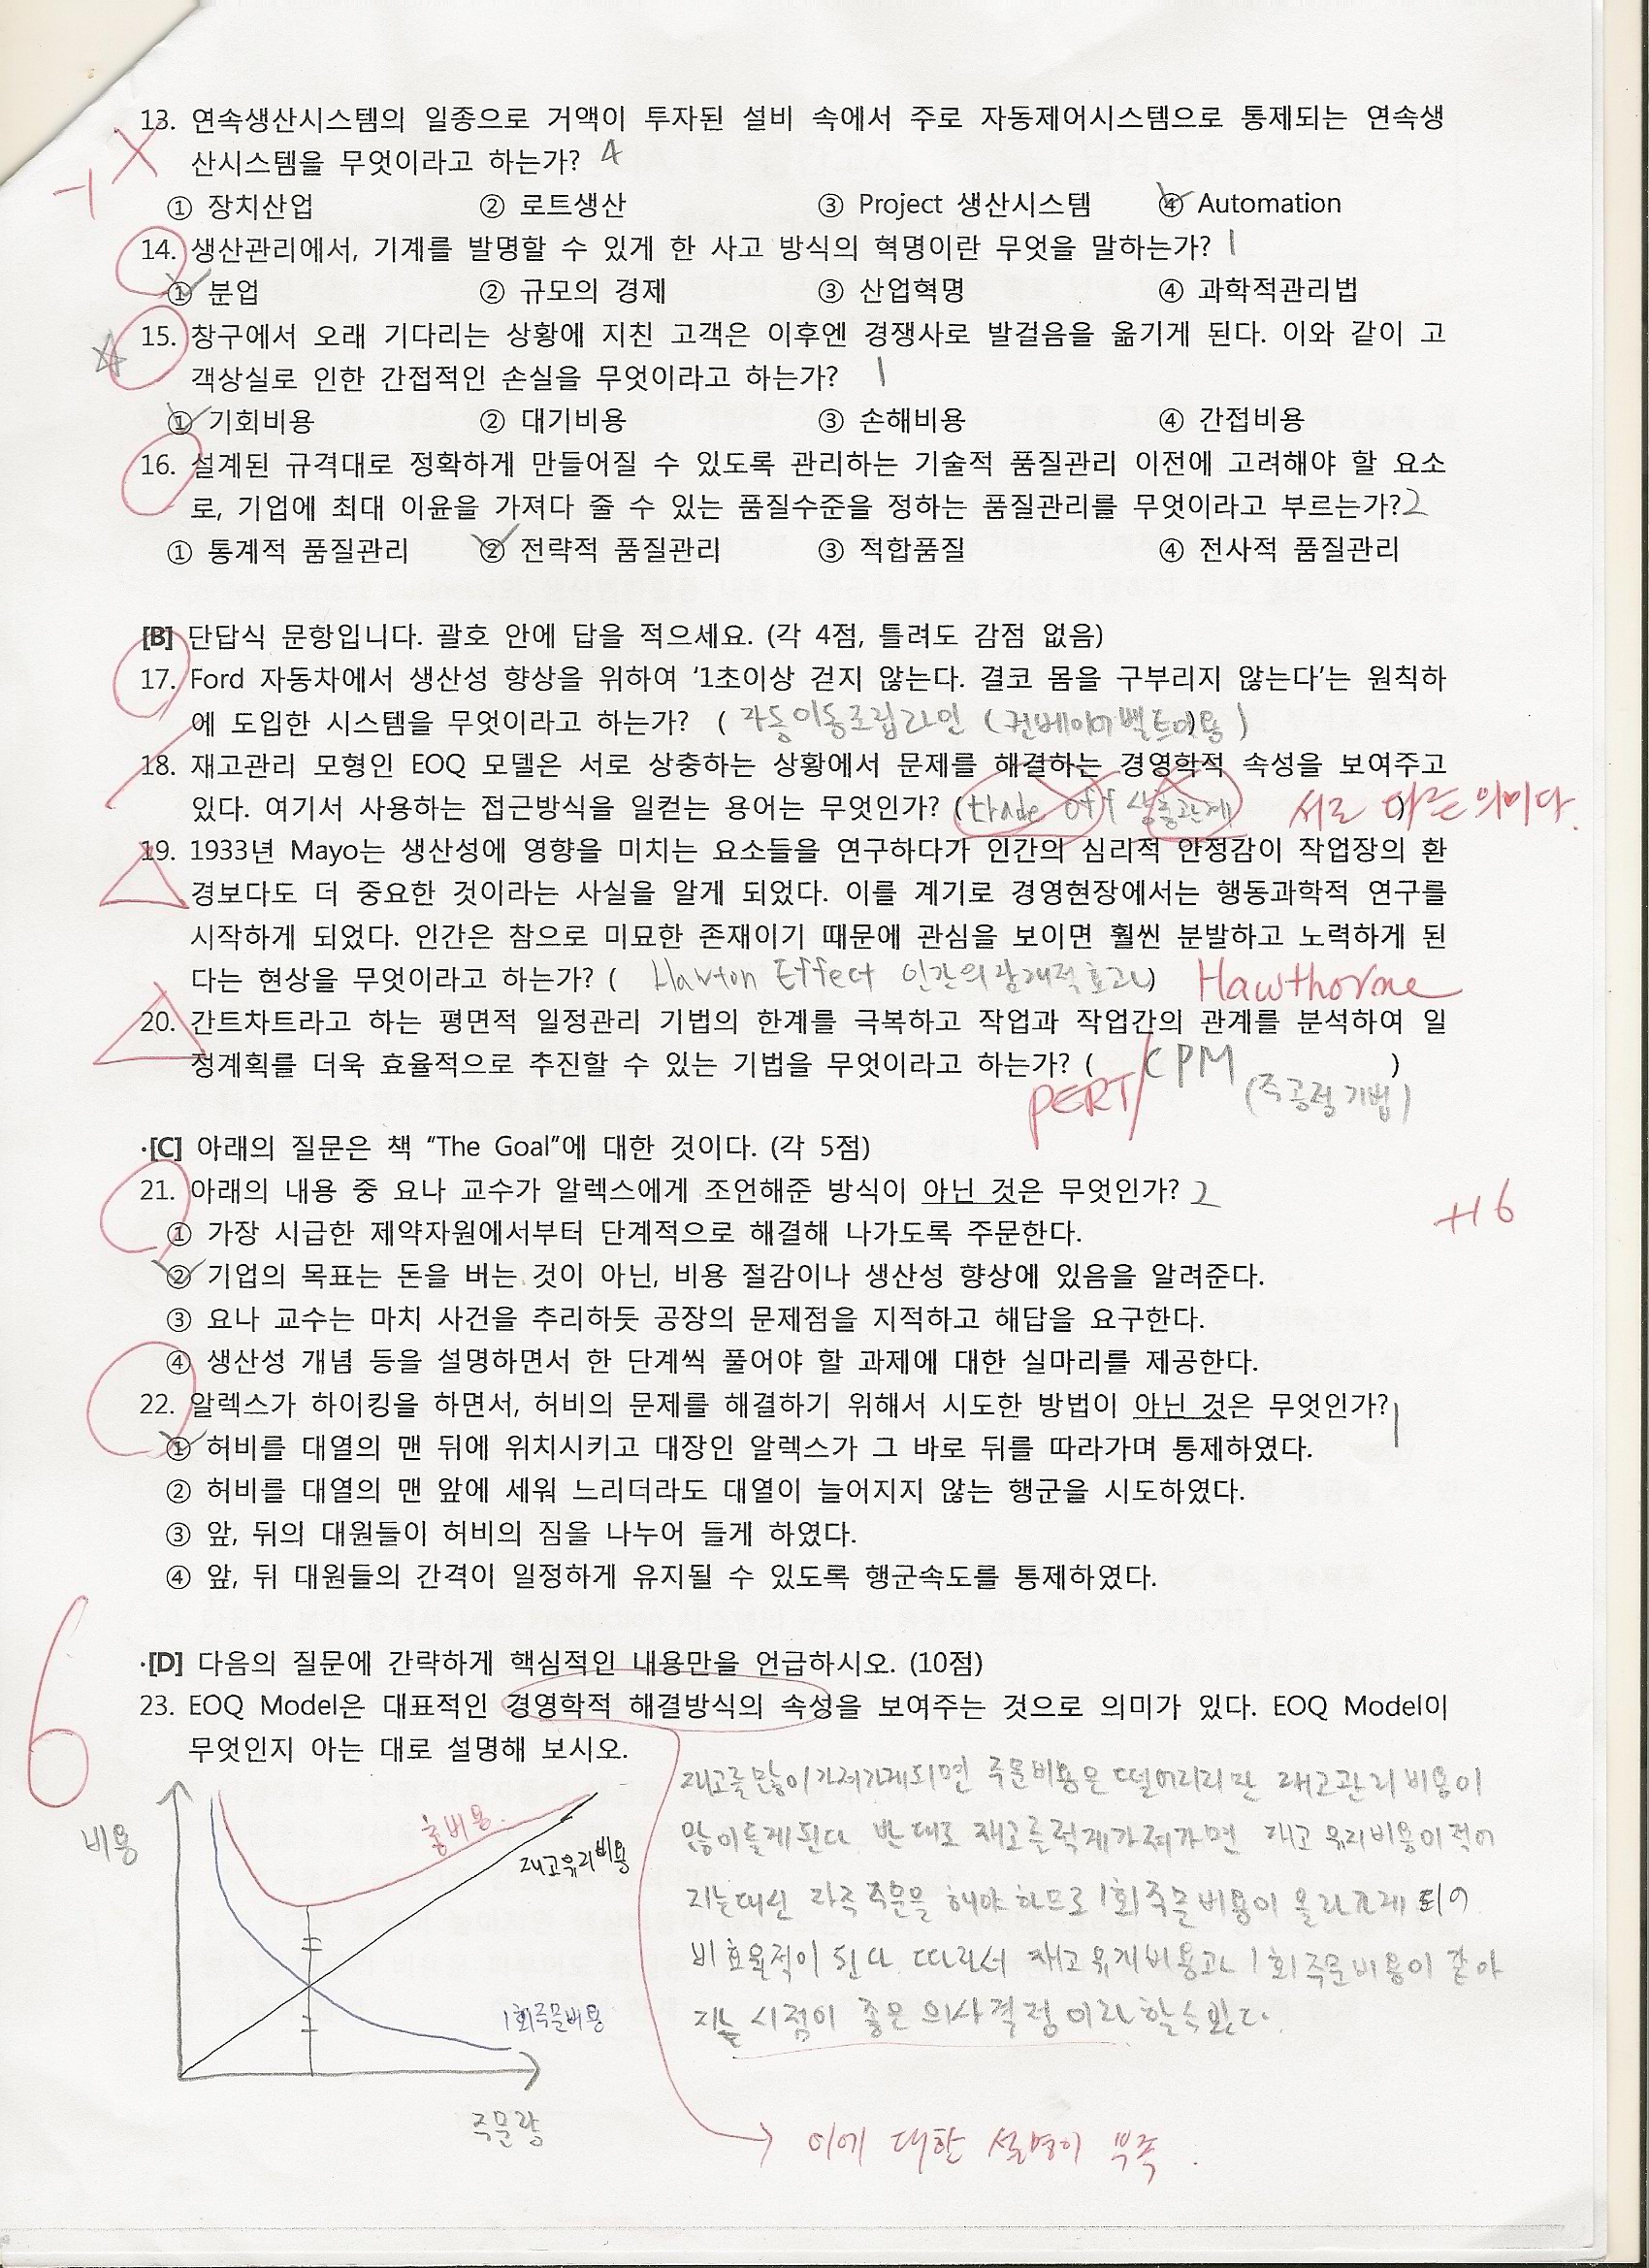 13. 연속생산시스템의 일종으로 거액이 투자된 설비 속에서 주로 자동제어시스템으로 통제되는 연속생
산시스템을 무엇이라고 하는가? 4
-1
① 장치산업 ② 로트생산 ③ Project 생산시스템 ④ Automation
14. 생산관리에서, 기계를 발명할 수 있게 한 사고 방식의 혁명이란 무엇을 말하는가? 1
① 분업 ② 규모의 경제 ③ 산업혁명 ④ 과학적관리법
15. 창구에서 오래 기다리는 상황에 지친 고객은 이후엔 경쟁사로 발걸음을 옮기게 된다. 이와 같이 고
객상실로 인한 간접적인 손실을 무엇이라고 하는가? 1
① 기회비용 ② 대기비용 ③ 손해비용 ④ 간접비용
16. 설계된 규격대로 정확하게 만들어질 수 있도록 관리하는 기술적 품질관리 이전에 고려해야 할 요소
로, 기업에 최대 이윤을 가져다 줄 수 있는 품질수준을 정하는 품질관리를 무엇이라고 부르는가? 2
① 통계적 품질관리 ② 전략적 품질관리 ③ 적합품질 ④ 전사적 품질관리
[B] 단답식 문항입니다. 괄호 안에 답을 적으세요. (각 4점, 틀려도 감점 없음)
17. Ford 자동차에서 생산성 향상을 위하여 '1초이상 걷지 않는다. 결코 몸을 구부리지 않는다'는 원칙하
에 도입한 시스템을 무엇이라고 하는가? ( 자동이동조립라인 (컨베이어벨트이용)
18. 재고관리 모형인 EOQ 모델은 서로 상충하는 상황에서 문제를 해결하는 경영학적 속성을 보여주고
있다. 여기서 사용하는 접근방식을 일컫는 용어는 무엇인가? (trade off 상충관계 ) 서로 다른 의미다.
19. 1933년 Mayo는 생산성에 영향을 미치는 요소들을 연구하다가 인간의 심리적 안정감이 작업장의 환
경보다도 더 중요한 것이라는 사실을 알게 되었다. 이를 계기로 경영현장에서는 행동과학적 연구를
시작하게 되었다. 인간은 참으로 미묘한 존재이기 때문에 관심을 보이면 훨씬 분발하고 노력하게 된
다는 현상을 무엇이라고 하는가? ( Hawton Effect 인간의 관계적효과) Hawthorne
20. 간트차트라고 하는 평면적 일정관리 기법의 한계를 극복하고 작업과 작업간의 관계를 분석하여 일
정계획를 더욱 효율적으로 추진할 수 있는 기법을 무엇이라고 하는가? ( CPM )
PERT/ (주공정기법)
·[C] 아래의 질문은 책 “The Goal”에 대한 것이다. (각 5점)
21. 아래의 내용 중 요나 교수가 알렉스에게 조언해준 방식이 아닌 것은 무엇인가? 2
+16
① 가장 시급한 제약자원에서부터 단계적으로 해결해 나가도록 주문한다.
② 기업의 목표는 돈을 버는 것이 아닌, 비용 절감이나 생산성 향상에 있음을 알려준다.
③ 요나 교수는 마치 사건을 추리하듯 공장의 문제점을 지적하고 해답을 요구한다.
④ 생산성 개념 등을 설명하면서 한 단계씩 풀어야 할 과제에 대한 실마리를 제공한다.
22. 알렉스가 하이킹을 하면서, 허비의 문제를 해결하기 위해서 시도한 방법이 아닌 것은 무엇인가? 1
① 허비를 대열의 맨 뒤에 위치시키고 대장인 알렉스가 그 바로 뒤를 따라가며 통제하였다.
② 허비를 대열의 맨 앞에 세워 느리더라도 대열이 늘어지지 않는 행군을 시도하였다.
③ 앞, 뒤의 대원들이 허비의 짐을 나누어 들게 하였다.
④ 앞, 뒤 대원들의 간격이 일정하게 유지될 수 있도록 행군속도를 통제하였다.
6
·[D] 다음의 질문에 간략하게 핵심적인 내용만을 언급하시오. (10점)
23. EOQ Model은 대표적인 경영학적 해결방식의 속성을 보여주는 것으로 의미가 있다. EOQ Model이
무엇인지 아는 대로 설명해 보시오.
비용
총비용
재고유지비용
1회주문비용
주문량
재고를많이가져가게되면 주문비용은 떨어지지만 재고관리비용이
많이들게된다 반대로 재고를적게가져가면 재고유지비용이적어
지는대신 자주 주문을 해야 하므로 1회주문비용이 올라가게 되어
비효율적이 된다 따라서 재고유지비용과 1회주문비용이 같아
지는 시점이 좋은 의사결정 이라 할수있다.
이에 대한 설명이 부족.